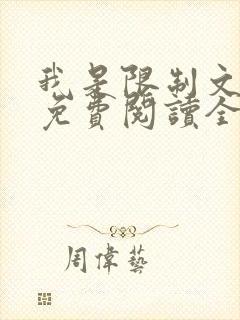 我是限制文
免費閱讀全
周偉藝